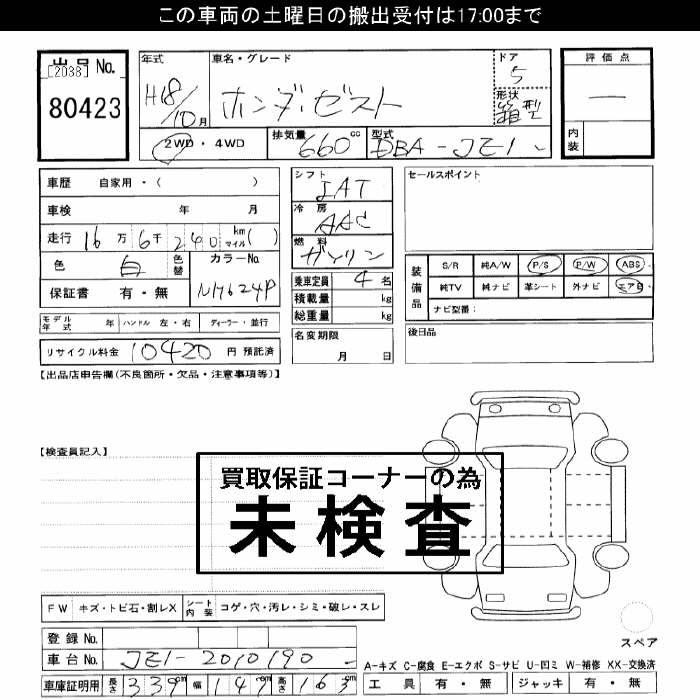 この車両の土曜日の搬出受付は17:00まで
出品 No.
[2038]
80423
年式
H18/10月
車名・グレード
ホンダ ゼスト
ドア
5
形状
箱型
評価点
—
内装
2WD・4WD
排気量
660 cc
型式
DBA-JE1
車歴 自家用・( )
車検 年 月
走行 16万6千240 km マイル ( )
色 白 色替
カラーNo
NH624P
保証書 有・無
モデル年式 年 ハンドル 左・右 ディーラー・並行
リサイクル料金 10420 円 預託済
シフト
IAT
冷房
AAC
燃料
ガソリン
乗車定員 4 名
積載量 kg
総重量 kg
名変期限
月 日
セールスポイント
装備品
S/R 純A/W P/S P/W ABS
純TV 純ナビ 革シート 外ナビ エアB
ナビ型番:
後日品
【出品店申告欄(不良箇所・欠品・注意事項等)】
【検査員記入】
買取保証コーナーの為
未検査
FW キズ・トビ石・割レX シート内装 コゲ・穴・汚レ・シミ・破レ・スレ
登録 No.
車台 No. JE1-2010190
車庫証明用 長さ 339cm 幅 147cm 高さ 163cm
スペア
A-キズ C-腐食 E-エクボ S-サビ U-凹ミ W-補修 XX-交換済
工具 有・無 ジャッキ 有・無